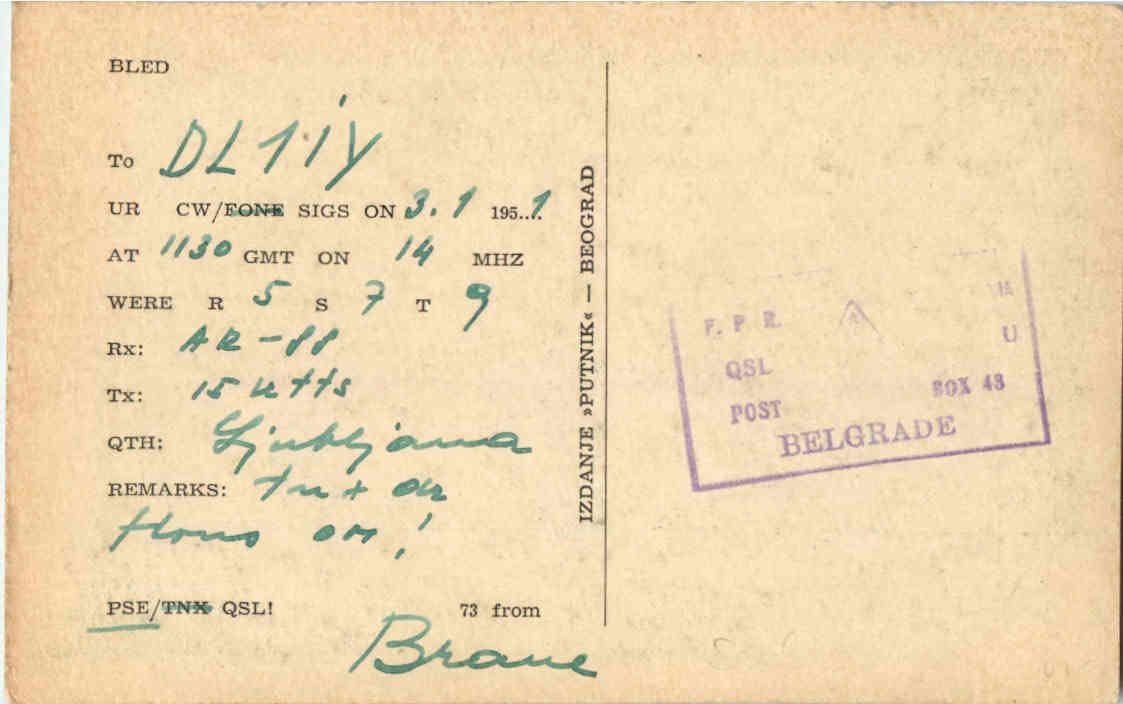 BLED
To DL1iY
UR CW/FONE SIGS ON 3.1 195...1
AT 1130 GMT ON 14 MHZ
WERE R 5 S 7 T 9
Rx: AR-88
Tx: 15 wtts
QTH: Ljubljana
REMARKS: Tnx dr
Hans om!
PSE/TNX QSL!
73 from
Brane
IZDANJE »PUTNIK« — BEOGRAD
F. P. R.
U
QSL
POST BOX 48
BELGRADE